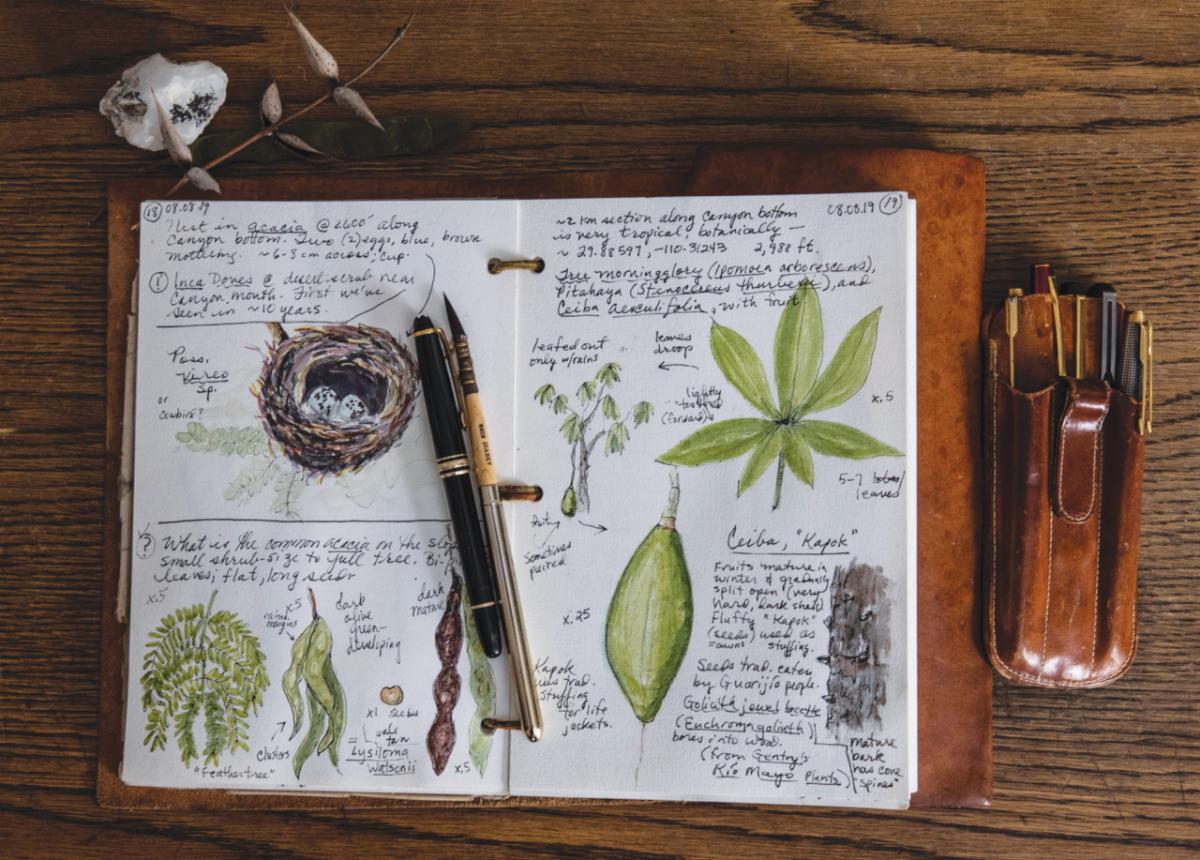 18 08.08.19
Nest in acacia @ 2600' along
Canyon bottom. Two (2) eggs, blue, brown
mottling. ~6-8 cm across; cup.
! Inca Doves @ desert scrub near
Canyon mouth. First we've
seen in ~10 years.
Poss.
Vireo
sp.
or
cowbird?
? What is the common acacia on the
small shrub-size to full tree.
leaves; flat, long
x.5
x.5
raised margins
dark
olive
green-
developing
dark
mature
clusters
"Feather tree"
x1 seeds
tan
= Lysiloma
Watsonii
x.5
08.08.19 19
~2 km section along Canyon bottom
is very tropical, botanically —
~ 29.88597, -110.31243 2,988 ft.
Tree morningglory (Ipomoea arborescens),
Pitahaya (Stenocereus thurberi), and
Ceiba Aesculifolia, with fruit
leafed out
only w/rains
leaves
droop
lightly
(forward)
x.5
5-7 lobes/
leaves
fruit
Sometimes
paired
Ceiba, "Kapok"
x.25
Fruits mature in
winter & gradually
split open (very
hard, dark shell)
Fluffy "Kapok"
(seeds) used as
stuffing.
Kapok
was trad.
stuffing
for life
jackets.
Seeds trad. eaten
by Guarijío people.
Goliath jewel beetle
(Euchroma goliath)
bores into wood.
(from Gentry's
Río Mayo Plants)
mature
bark
has cone
"spines"